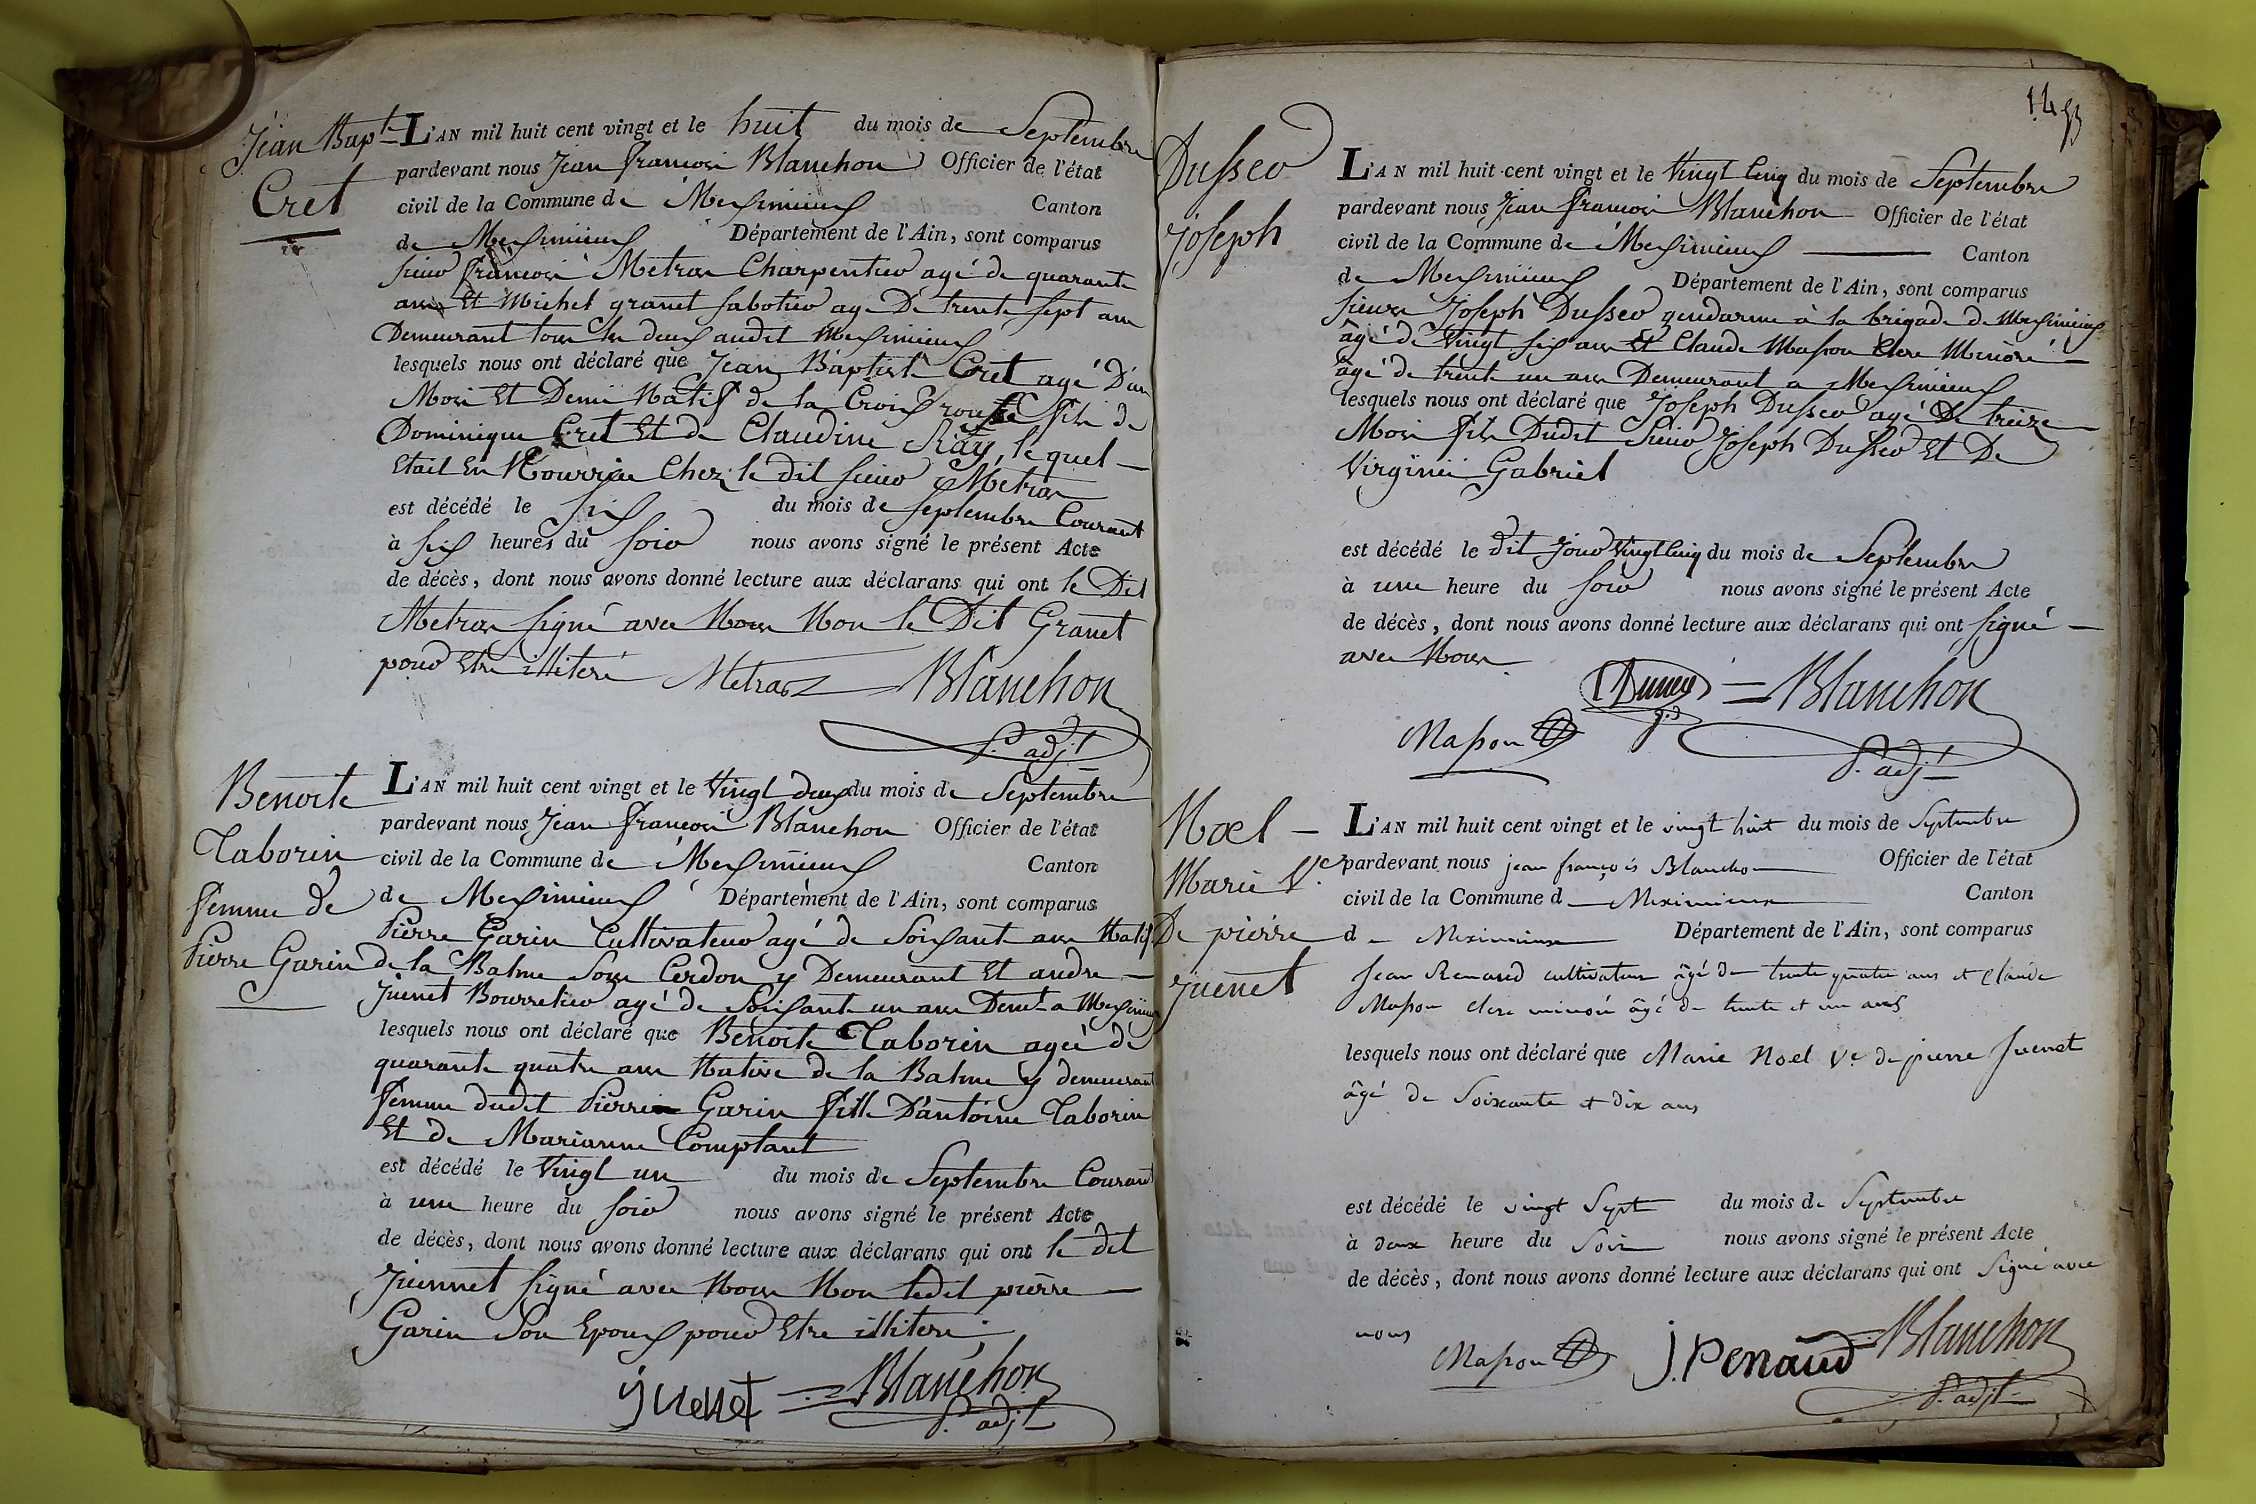 Jean Bapte
Cret
L'AN mil huit cent vingt et le huit du mois de Septembre
pardevant nous Jean francois Blanchon Officier de l'état
civil de la Commune de Meximieux Canton
de Meximieux Département de l'Ain, sont comparus
sieur francois Metras Charpentier agé de quarante
ans Et Michel granet sabotier agé De trente sept ans
Demeurant tous les deux audit Meximieux
lesquels nous ont déclaré que Jean Baptiste Cret agé D'un
Mois Et Demi Natif de la Croix rousse fils de
Dominique Cret Et de Claudine Ray, le quel
Etait En Nourrice Chez le dit sieur Metras
est décédé le six du mois de septembre Courant
à six heures du soir nous avons signé le présent Acte
de décès, dont nous avons donné lecture aux déclarans qui ont le Dit
Metras signé avec Nous Non le Dit Granet
pour Etre illiteré Metras Blanchon
adjt
Benoite
Taborin
femme de
Pierre Garin
L'AN mil huit cent vingt et le vingt deux du mois de Septembre
pardevant nous Jean francois Blanchon Officier de l'état
civil de la Commune de Meximieux Canton
de Meximieux Département de l'Ain, sont comparus
Pierre Garin Cultivateur agé de Soixante ans Natif
de la Balme sous Cerdon y Demeurant Et andre
Juenet Bourrelier agé de Soixante un ans Demt a Meximieux
lesquels nous ont déclaré que Benoite Taborin agée de
quarante quatre ans Native de la Balme y demeurant
femme dudit Pierre Garin fille D'antoine Taborin
Et de Marianne Comptant
est décédé le vingt un du mois de Septembre Courant
à une heure du soir nous avons signé le présent Acte
de décès, dont nous avons donné lecture aux déclarans qui ont le dit
Juennet signé avec Nous Non ledit pierre
Garin Son Epoux pour Etre illiteré
juenet Blanchon
adjt
Dusser
Joseph
L'AN mil huit cent vingt et le vingt cinq du mois de Septembre
pardevant nous Jean francois Blanchon Officier de l'état
civil de la Commune de Meximieux Canton
de Meximieux Département de l'Ain, sont comparus
sieurs Joseph Dusser gendarme à la brigade de Meximieux
âgé de vingt six ans Et Claude Masson Clerc Minoré
agé de trente un ans Demeurant a Meximieux
lesquels nous ont déclaré que Joseph Dusser agé De treize
Mois fils Dudit Sieur Joseph Dusser Et De
Virginie Gabriel
est décédé le dit jour vingt cinq du mois de Septembre
à une heure du soir nous avons signé le présent Acte
de décès, dont nous avons donné lecture aux déclarans qui ont signé
avec Nous
Blanchon
Masson
adjt
Noel
Marie Ve
De pierre
Juenet
L'AN mil huit cent vingt et le vingt huit du mois de Septembre
pardevant nous jean françois Blanchon Officier de l'état
civil de la Commune d Meximieux Canton
de Meximieux Département de l'Ain, sont comparus
Jean Renaud cultivateur âgé de trente quatre ans et Claude
Masson clerc minoré âgé de trente et un ans
lesquels nous ont déclaré que Marie Noel Ve de pierre Juenet
âgé de Soixante et dix ans
est décédé le vingt Sept du mois de Septembre
à deux heure du Soir nous avons signé le présent Acte
de décès, dont nous avons donné lecture aux déclarans qui ont signé avec
nous
Masson J. Renaud Blanchon
adjt